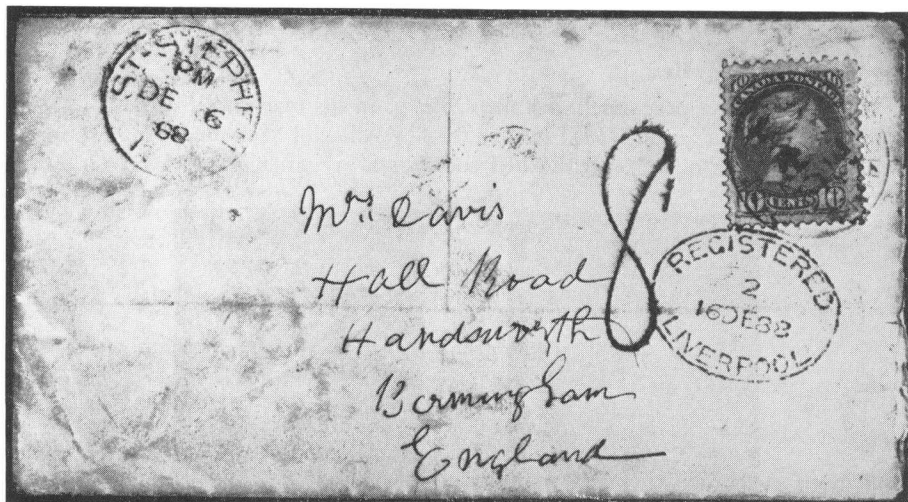 ST. STEPHEN
PM
DE 6
88
CANADA POSTAGE
10 CENTS 10
8
Mrs. Davis
Hall Road
Handsworth
Birmingham
England
REGISTERED
2
16 DE 88
LIVERPOOL